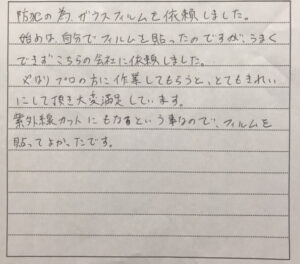 防犯の為、ガラスフィルムを依頼しました。
始めは、自分でフィルムを貼ったのですが、うまく
できずこちらの会社に依頼しました。
やはりプロの方に作業してもらうと、とてもきれい
にして頂き大変満足しています。
紫外線カットにもなるという事なので、フィルムを
貼ってよかったです。